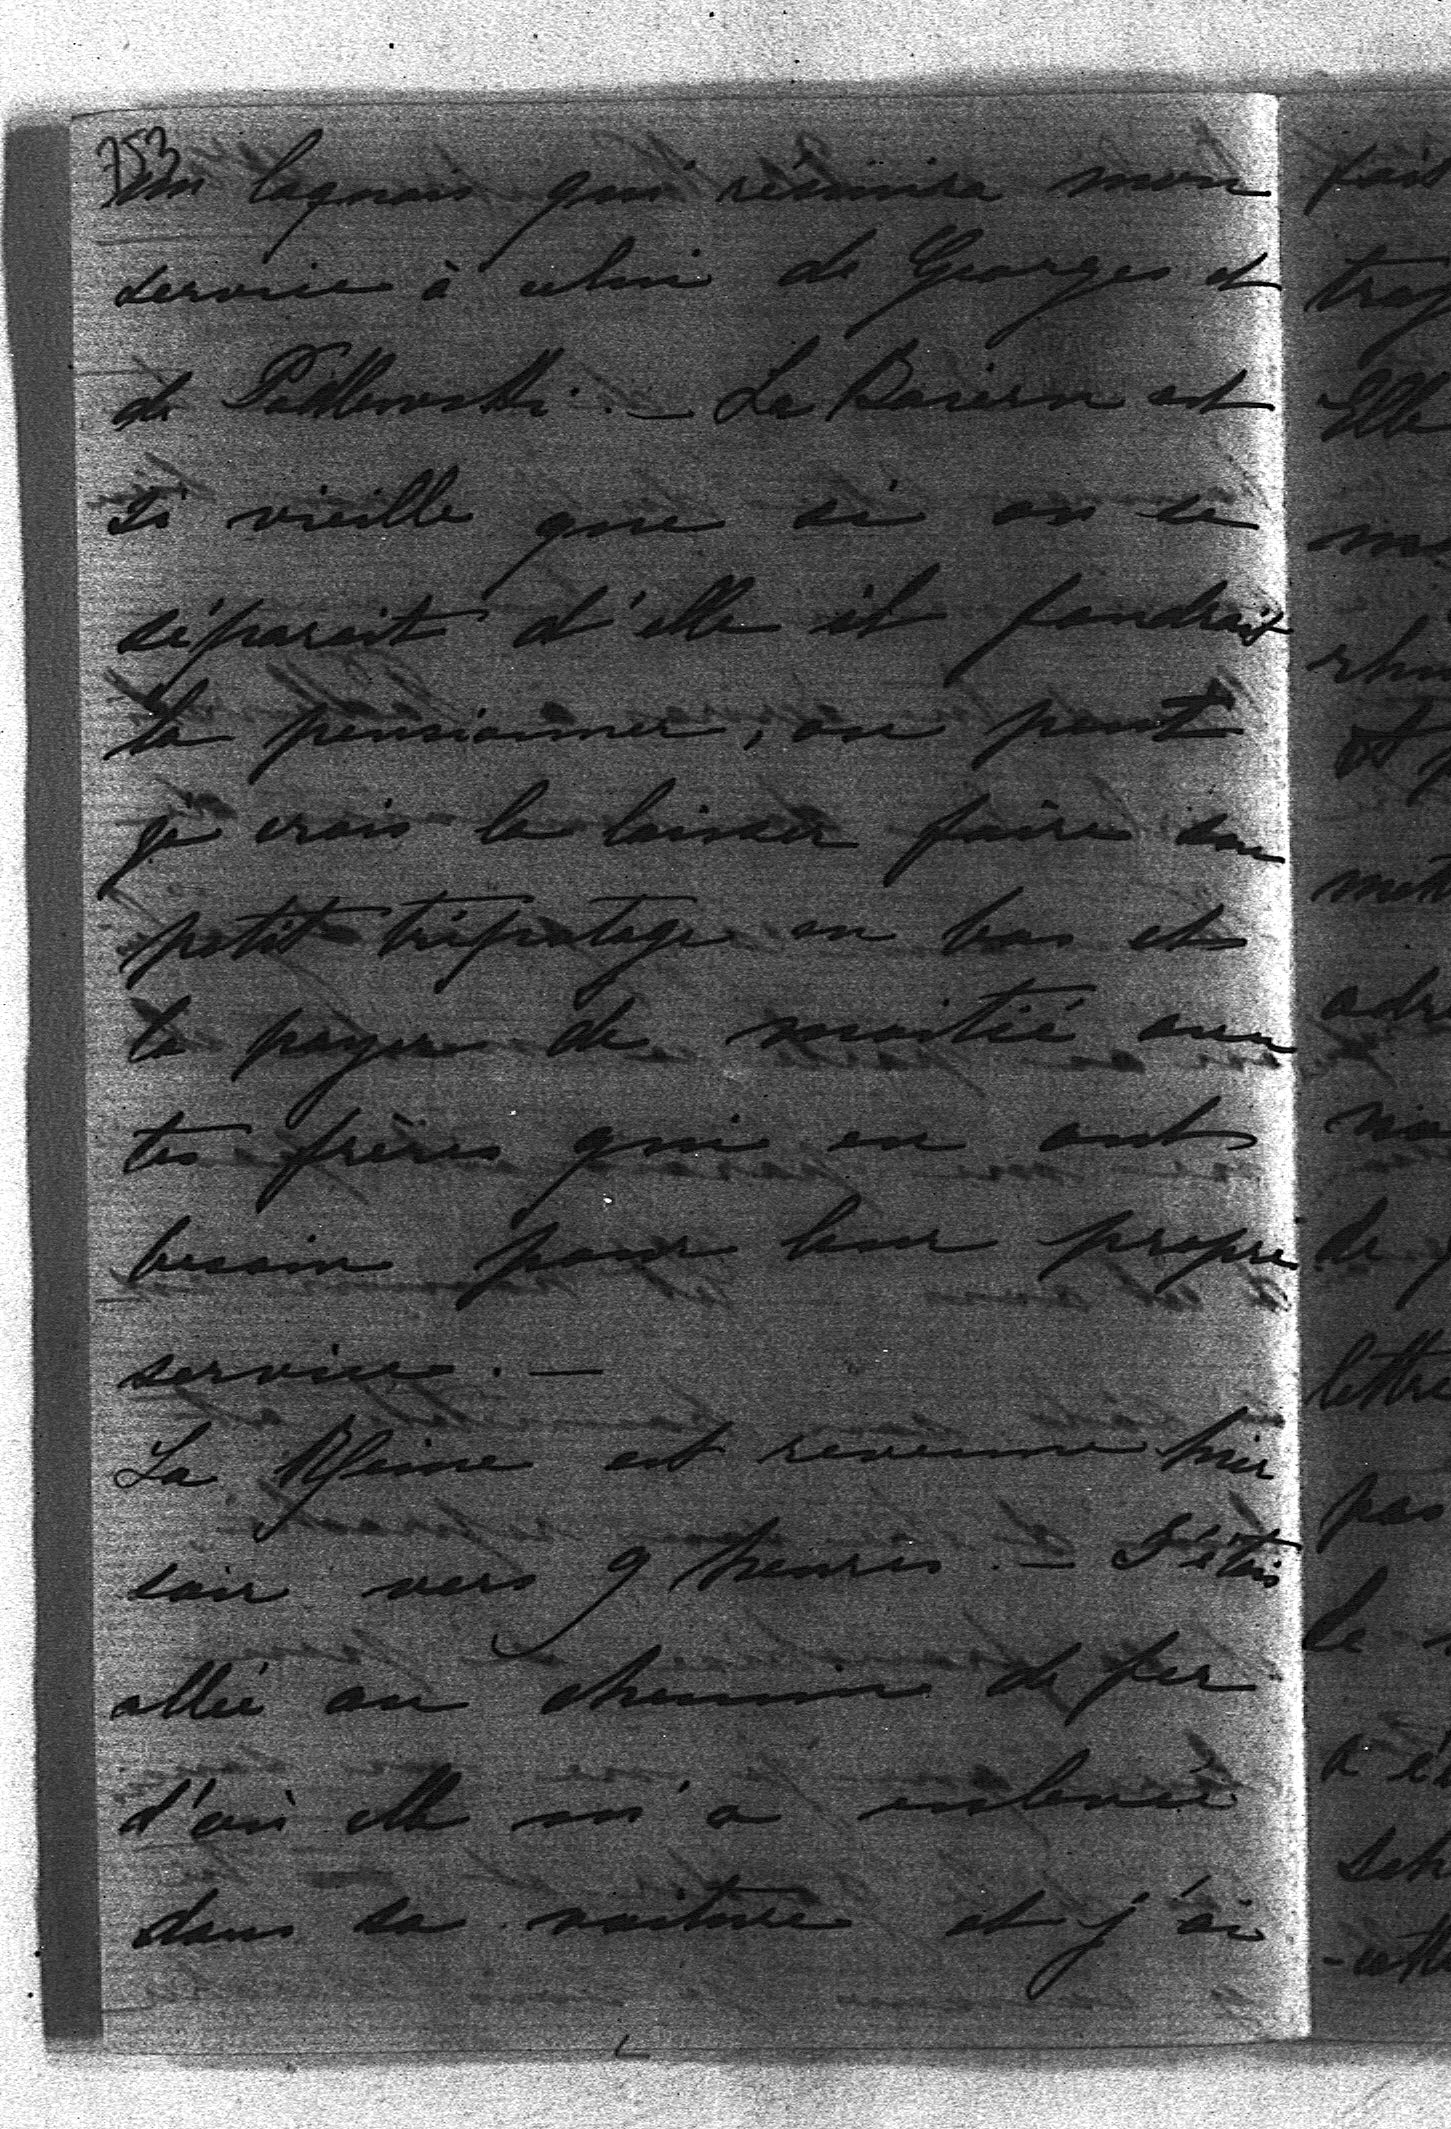 753
un laquais qui réunira mon
service à celui de Georges et
de Padlewski. — La Baiern est
si vieille que si on se
séparait d'elle il faudrait
la pensionner, on peut
je crois la laisser faire son
petit tripotage en bas et
la payer de moitié avec
tes frères qui en ont
besoin pour leur propre
service. —
La Reine est revenue hier
soir vers 9 heures. — J'étais
allée au chemin de fer
d'où elle m'a enlevée
dans sa voiture et j'ai
fait
trop
Elle
adr
de
lettre
pas
le
a é